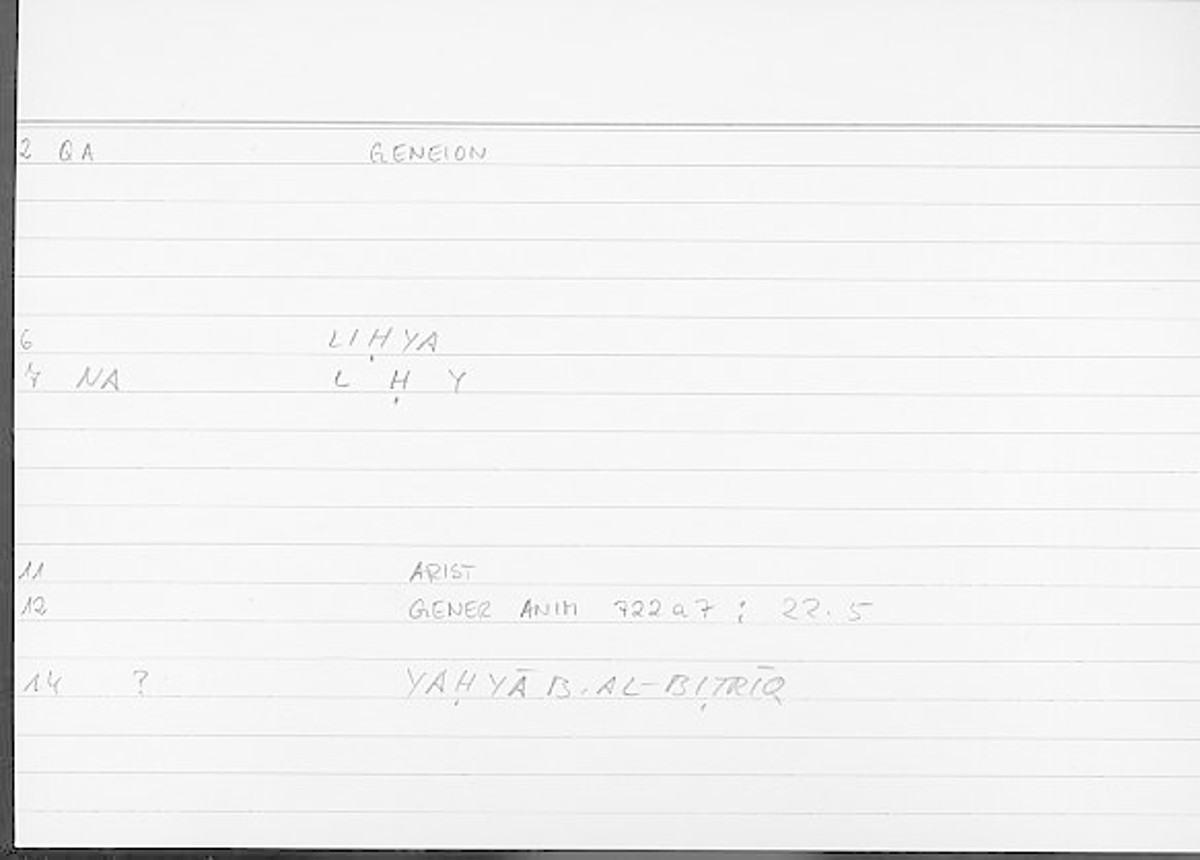 2 QA GENEION
6 LIḤYA
7 NA L Ḥ Y
11 ARIST
12 GENER ANIM 722a7 ; 22.5
14 ? YAḤYĀ B. AL-BIṬRĪQ